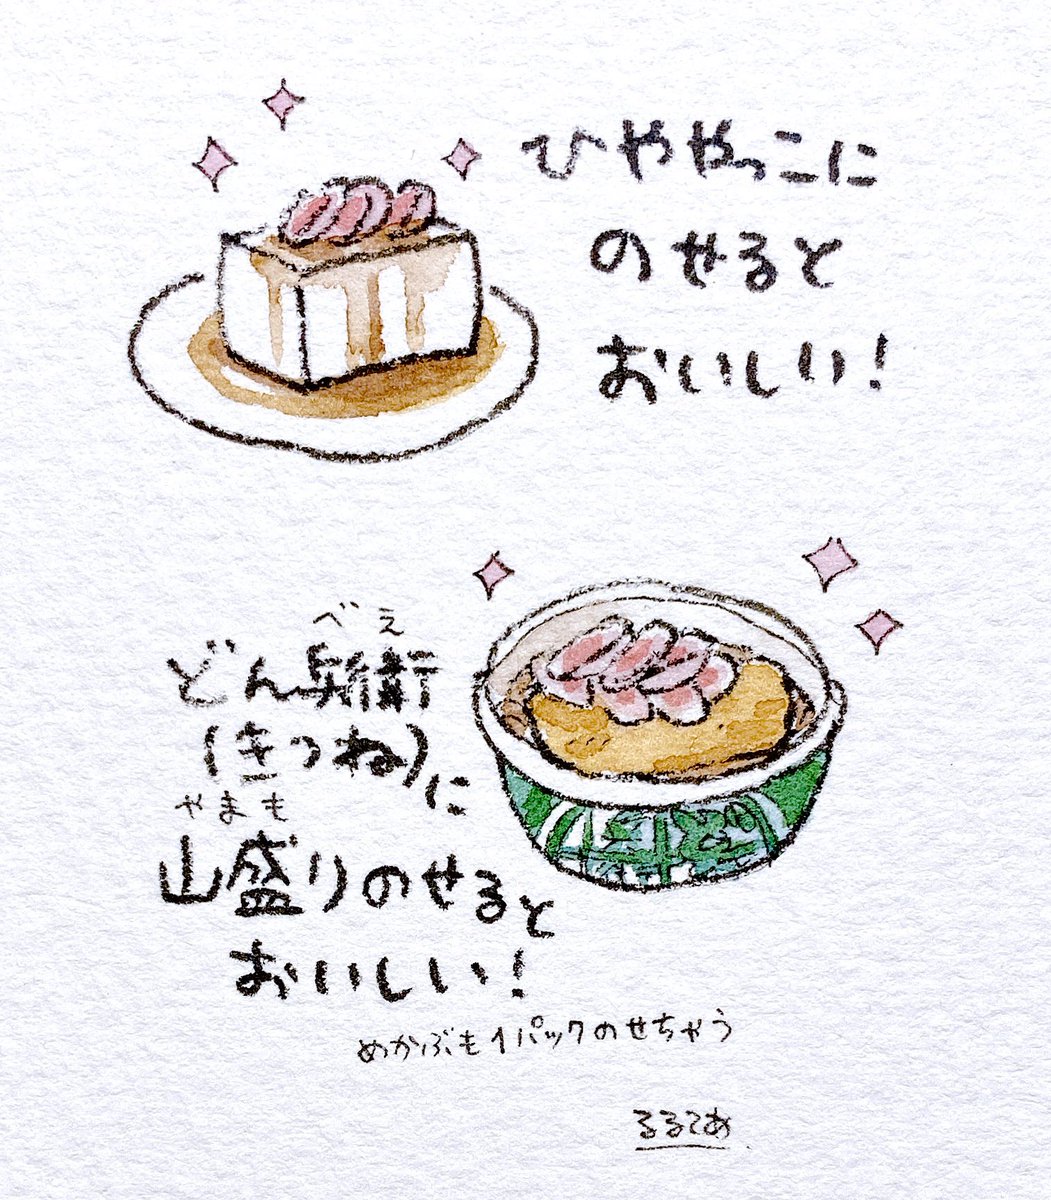 ひややっこに
のせると
おいしい!
べえ
どん兵衛
(きつね)に
やまも
山盛りのせると
おいしい!
めかぶも1パックのせちゃう
るるてあ